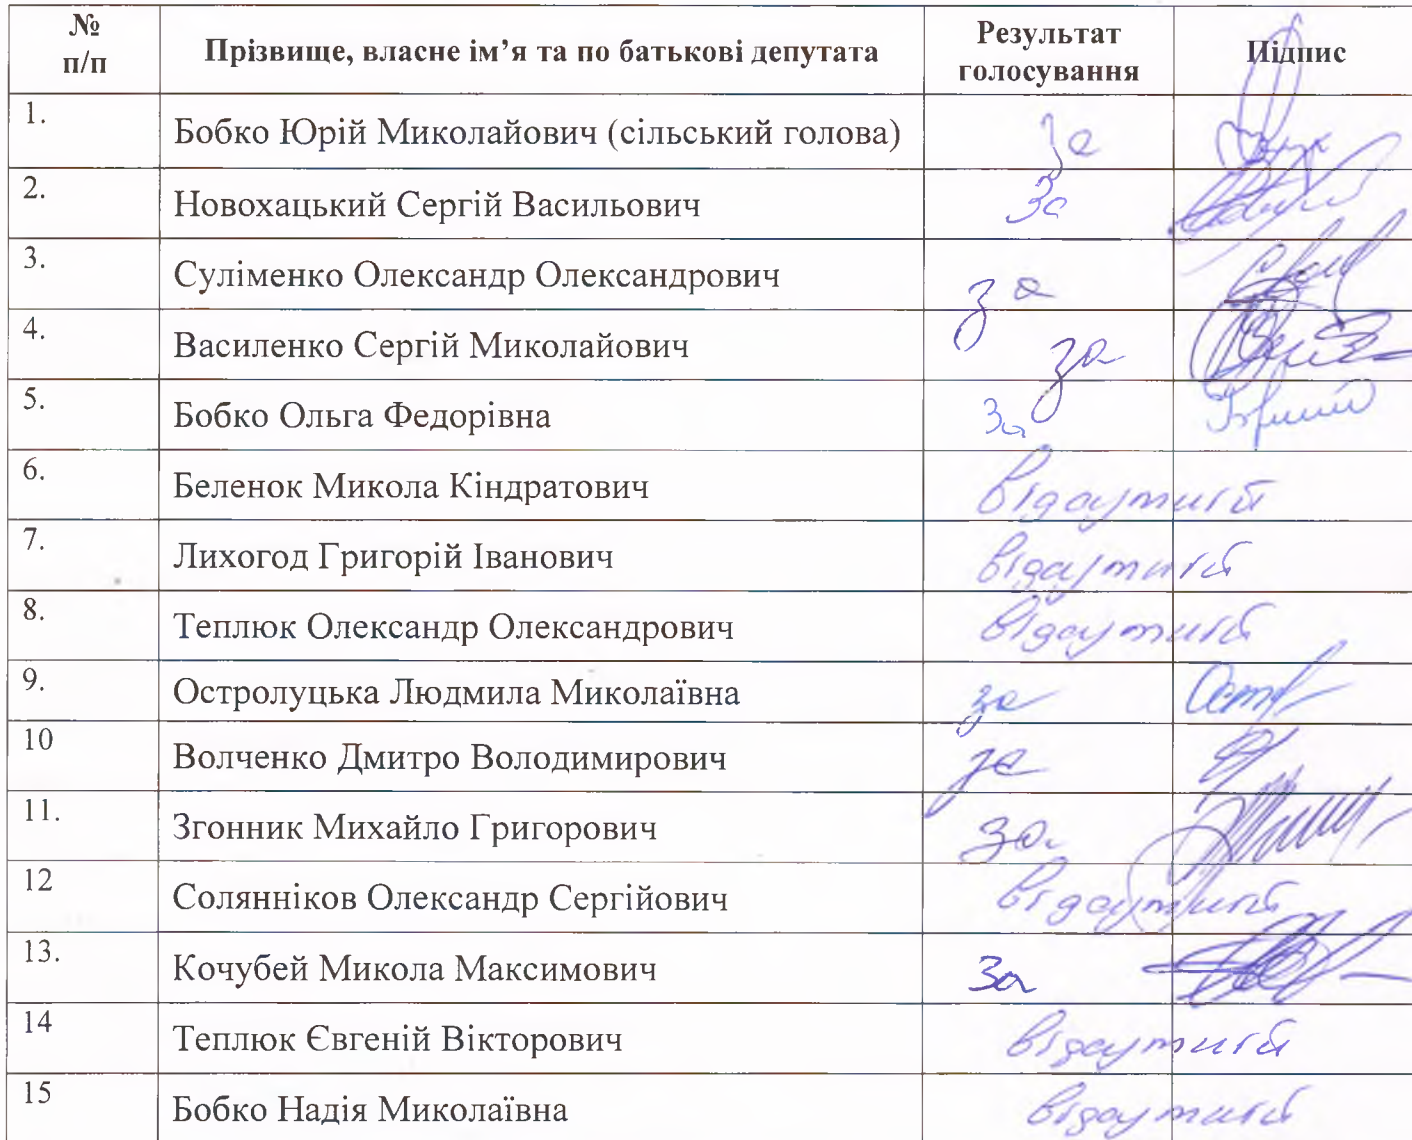 № п/п | Прізвище, власне ім’я та по батькові депутата | Результат голосування | Підпис
1. | Бобко Юрій Миколайович (сільський голова) | За
2. | Новохацький Сергій Васильович | За
3. | Суліменко Олександр Олександрович | за
4. | Василенко Сергій Миколайович | за
5. | Бобко Ольга Федорівна | За
6. | Беленок Микола Кіндратович | відсутній
7. | Лихогод Григорій Іванович | відсутній
8. | Теплюк Олександр Олександрович | відсутній
9. | Остролуцька Людмила Миколаївна | за
10 | Волченко Дмитро Володимирович | за
11. | Згонник Михайло Григорович | за
12 | Солянніков Олександр Сергійович | відсутній
13. | Кочубей Микола Максимович | За
14 | Теплюк Євгеній Вікторович | відсутній
15 | Бобко Надія Миколаївна | відсутній